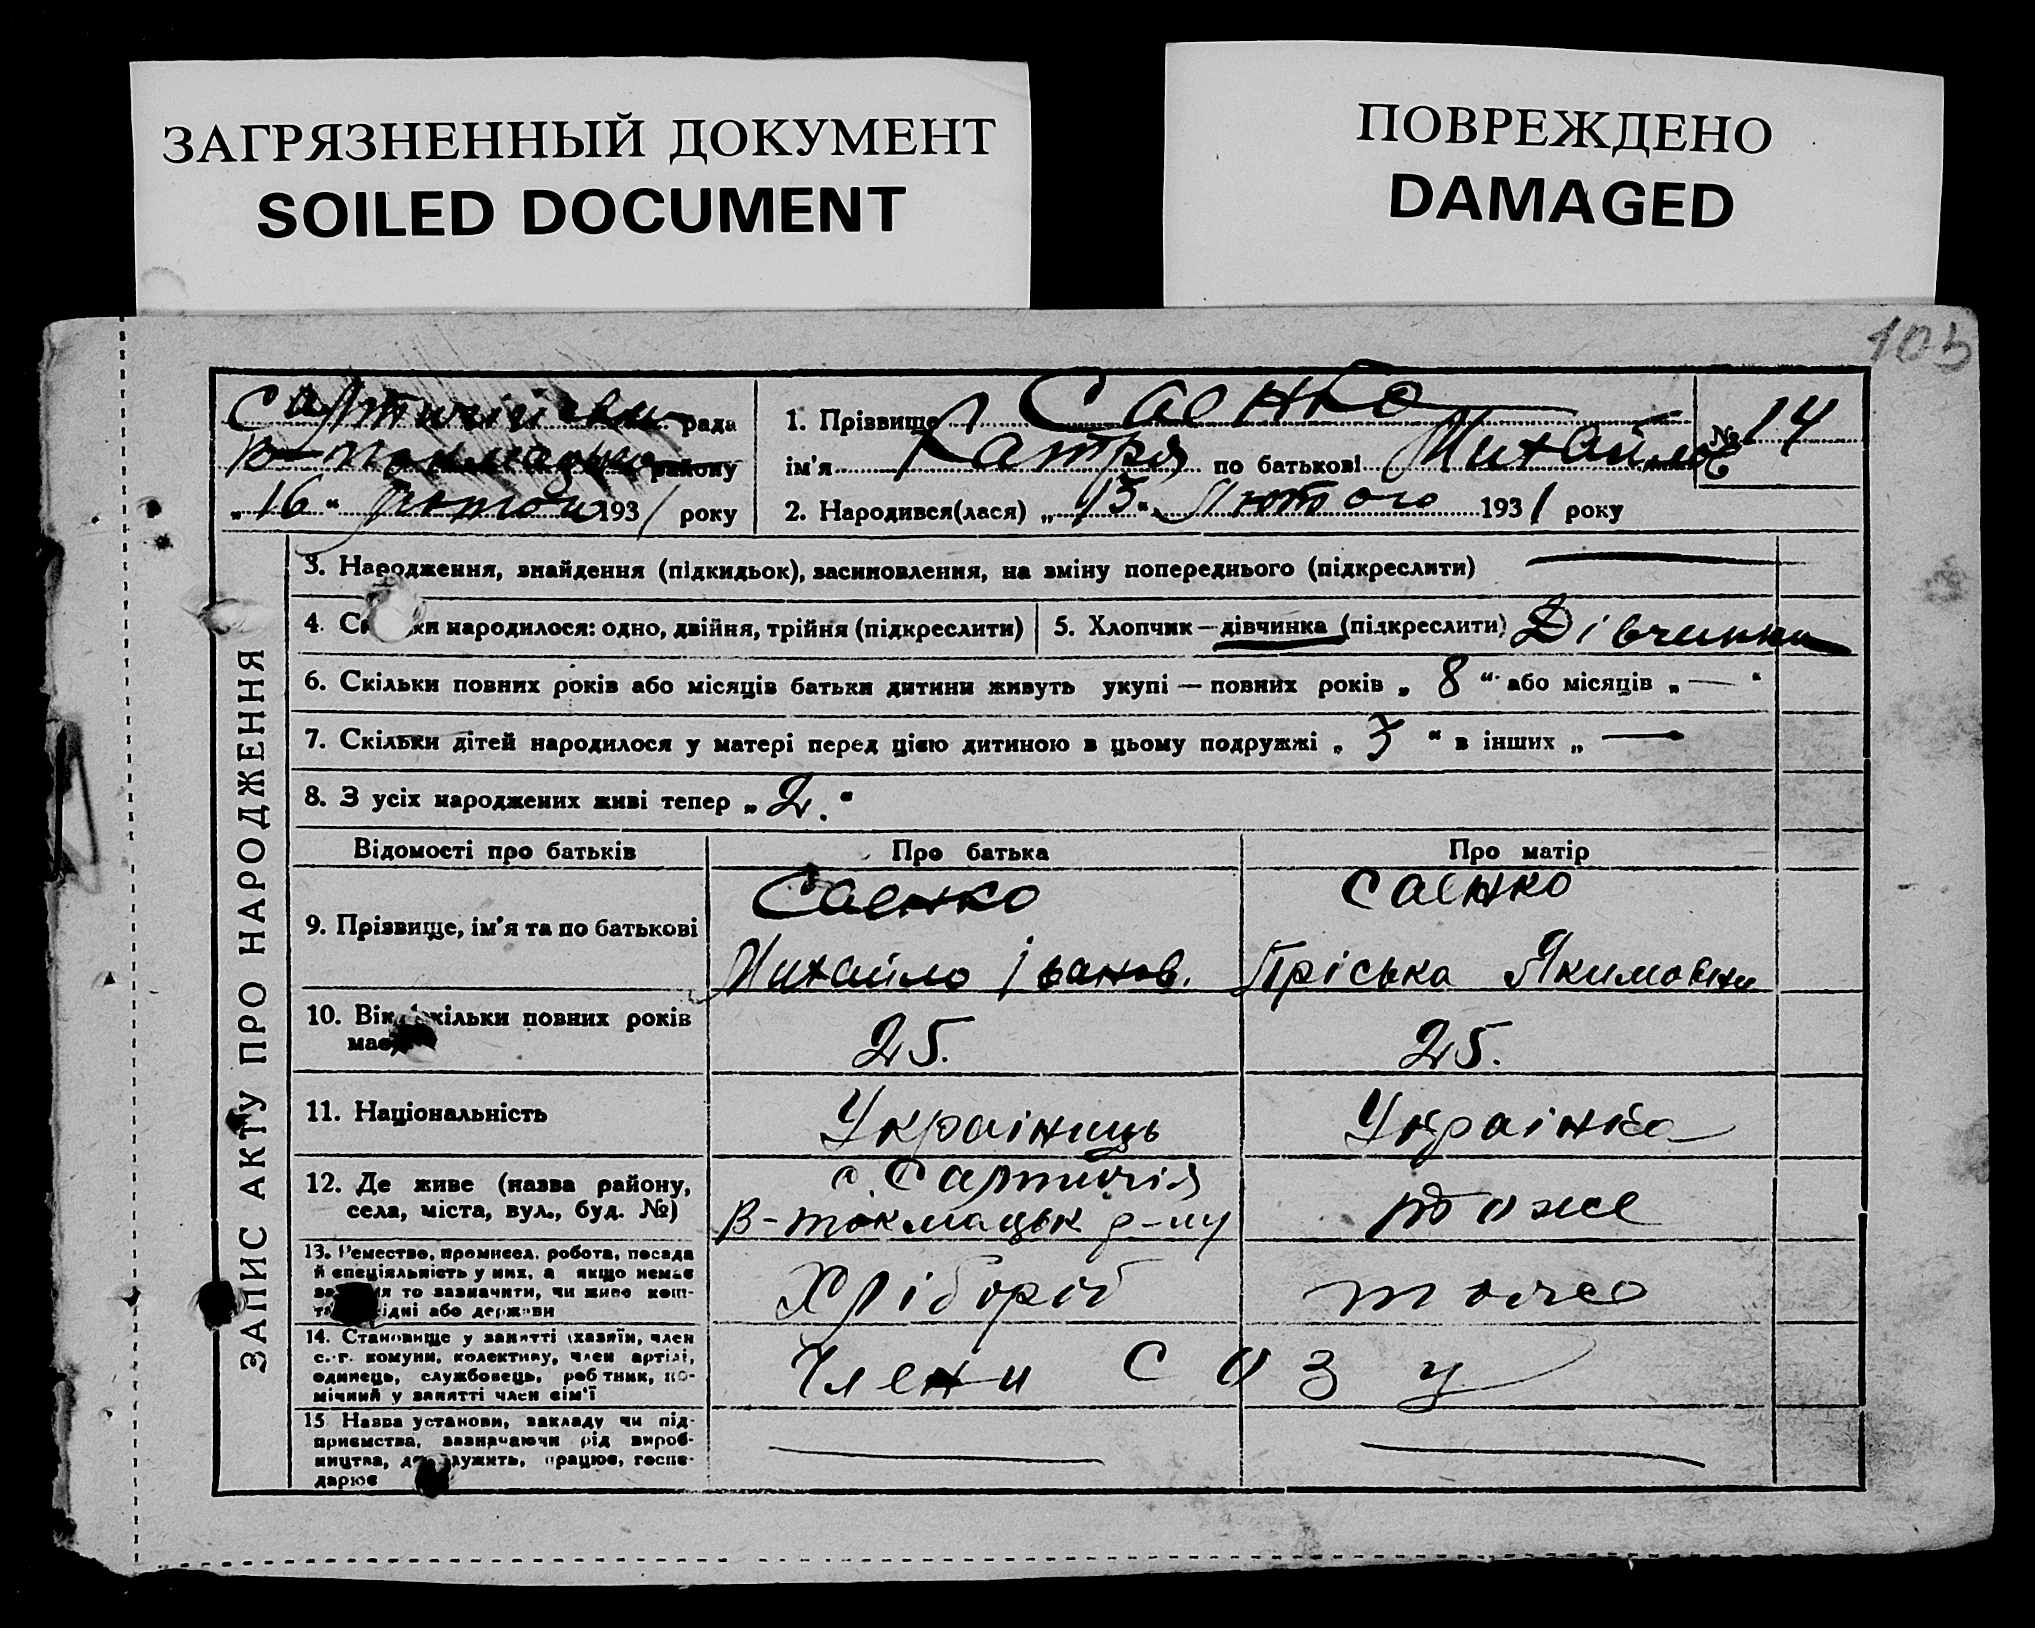 ЗАГРЯЗНЕННЫЙ ДОКУМЕНТ
SOILED DOCUMENT
ПОВРЕЖДЕНО
DAMAGED
105
рада
району
„16“ лютого 1931 року
1. Прізвище Саєнко
ім'я Катря по батькові Михайлов
№ 14
2. Народився(лася) „15“ Лютого 1931 року
ЗАПИС АКТУ ПРО НАРОДЖЕННЯ
3. Народження, знайдення (підкидьок), засиновлення, на зміну попереднього (підкреслити) —
4. Скільки народилося: одно, двійня, трійня (підкреслити)
5. Хлопчик — дівчинка (підкреслити) Дівчинка
6. Скільки повних років або місяців батьки дитини живуть укупі — повних років „8“ або місяців „—“
7. Скільки дітей народилося у матері перед цією дитиною в цьому подружжі „3“ в інших „—
8. З усіх народжених живі тепер „2.“
Відомості про батьків
Про батька
Про матір
9. Прізвище, ім'я та по батькові
Саенко
Михайло Іванов.
Саенко
Пріська Якимовни
10. Вік, скільки повних років
має
25.
25.
11. Національність
Українець
Українка
12. Де живе (назва району,
села, міста, вул., буд. №)
с. Салтичія
В-токмацьк р-ну
тоже
13. Ремество, промисел, робота, посада
й спеціяльність у них, а якщо немає
заняття то зазначити, чи живе кош-
том рідні або держави
Хлібороб
тоже
14. Становище у занятті (хазяїн, член
с.-г. комуни, колективу, член артілі,
одинець, службовець, робітник, по-
мічний у занятті член сім'ї
Члени СОЗу
15 Назва установи, закладу чи під-
приємства, зазначаючи рід вироб-
ництва, де служить, працює, госпо-
дарює